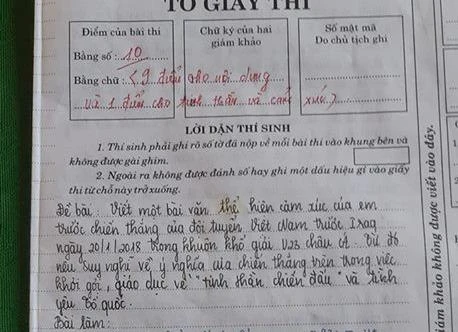 TỜ GIẤY THI
Điểm của bài thi
Bằng số: 10
Bằng chữ: (9 điểm cho nội dung
và 1 điểm cho tinh thần và cảm xúc.)
Chữ ký của hai
giám khảo
Số mật mã
Do chủ tịch ghi
LỜI DẶN THÍ SINH
1. Thí sinh phải ghi rõ số tờ đã nộp về mỗi bài thi vào khung bên và
không được gài ghim.
2. Ngoài ra không được đánh số hay ghi một dấu hiệu gì vào giấy
thi từ chỗ này trở xuống.
Đề bài: Viết một bài văn thể hiện cảm xúc của em
trước chiến thắng của đội tuyển Việt Nam trước Iraq
ngày 20/1/2018 trong khuôn khổ giải U23 châu Á. Từ đó
nêu suy nghĩ về ý nghĩa của chiến thắng trên trong việc
khơi gợi, giáo dục về "tinh thần chiến đấu" và tình
yêu Tổ quốc.
Bài làm:
giám khảo không được viết vào đây.
1